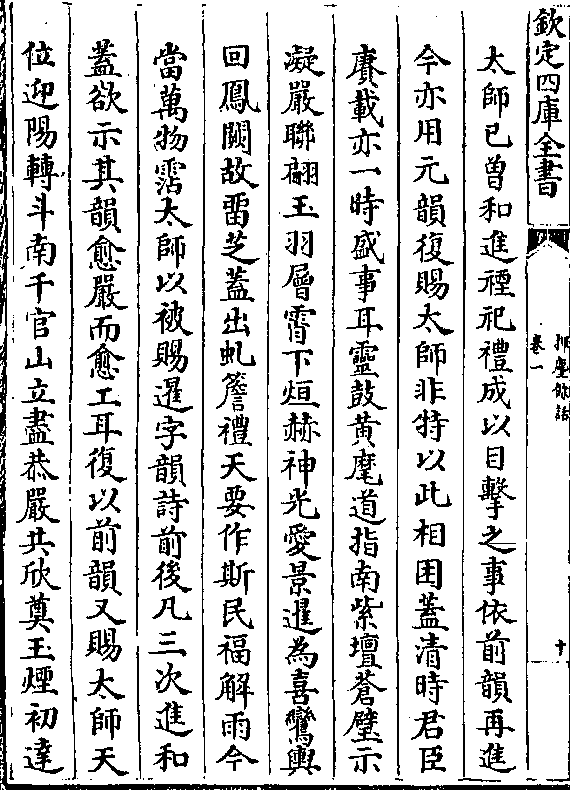 欽定四庫全書
揮麈餘話
卷一
十
太師已曽和進禋祀禮成以目擊之事依前韻再進
今亦用元韻復賜太師非特以此相困蓋清時君臣
賡載亦一時盛事耳靈鼓黄麾道指南紫壇蒼璧示
凝嚴聯翩玉羽層霄下烜赫神光愛景暹為喜鸞輿
回鳳闕故畱芝蓋出虬簷禮天要作斯民福解雨今
當萬物霑太師以被賜暹字韻詩前後凡三次進和
蓋欲示其韻愈嚴而愈工耳復以前韻又賜太師天
位迎陽轉斗南千官山立盡恭嚴共欣奠玉煙初達